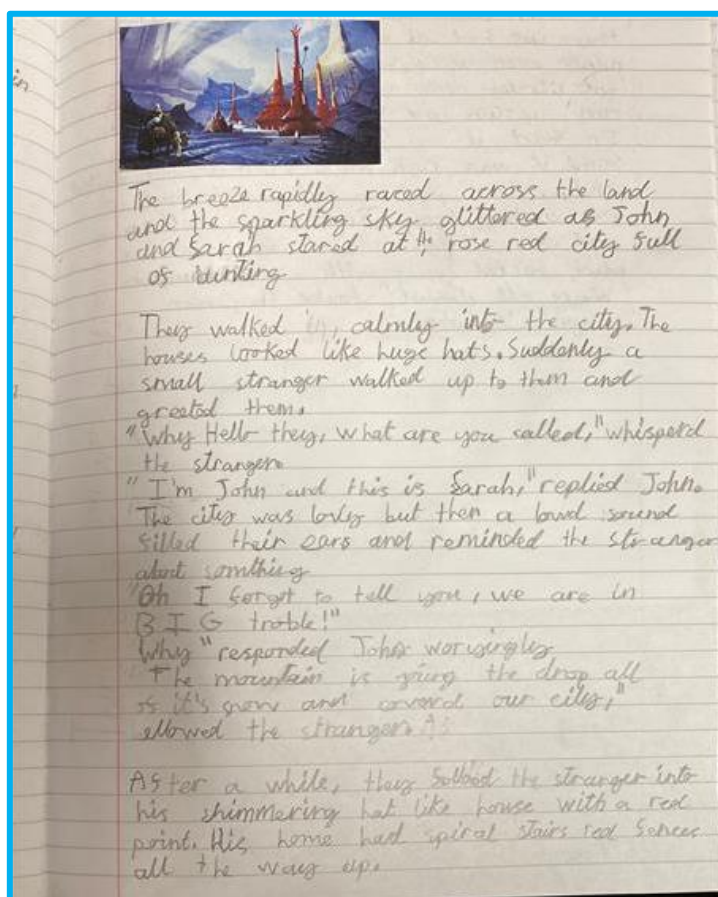 in
The breeze rapidly raced across the land
and the sparkling sky glittered as John
and Sarah stared at the rose red city full
of bunting
They walked in, calmly into the city. The
houses looked like huge hats. Suddenly a
small stranger walked up to them and
greeted them.
"Why Hello they, what are you called," whisperd
the stranger.
"I'm John and this is Sarah," replied John.
The city was lovly but then a loud sound
filled their ears and reminded the stranger
about somthing
"Oh I forgot to tell you, we are in
BIG troble!"
Why" responded John woryingly
"The mountain is going the drop all
of it's snow and coverd our city,"
ellowed the stranger. As
After a while, they the stranger into
his shimmering hat like house with a red
point. His home had spiral stairs red fences
all the way up.